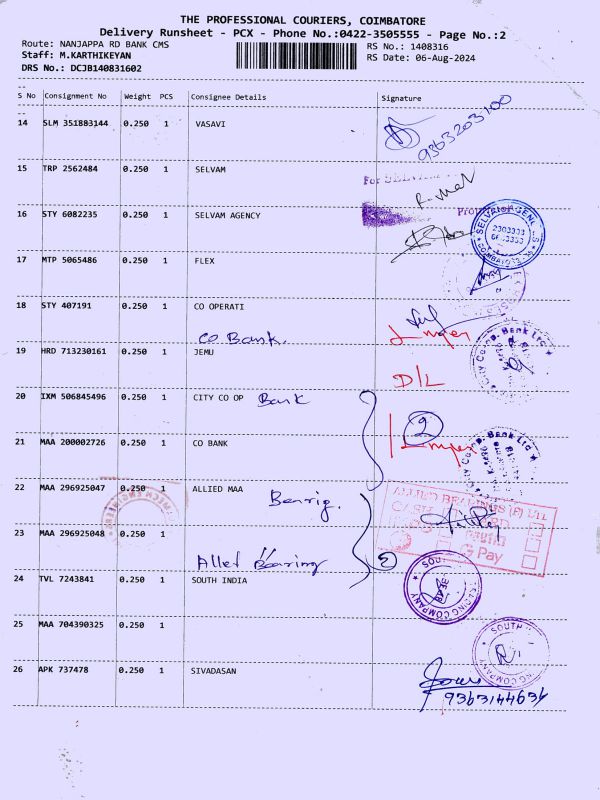 THE PROFESSIONAL COURIERS, COIMBATORE
Delivery Runsheet - PCX - Phone No.:0422-3505555 - Page No.:2
Route: NANJAPPA RD BANK CMS RS No.: 1408316
Staff: M.KARTHIKEYAN RS Date: 06-Aug-2024
DRS No.: DCJB140831602
S No Consignment No Weight PCS Consignee Details Signature
14 SLM 351883144 0.250 1 VASAVI
9363203100
15 TRP 2562484 0.250 1 SELVAM
For SELVAM
16 STY 6082235 0.250 1 SELVAM AGENCY
17 MTP 5065486 0.250 1 FLEX
18 STY 407191 0.250 1 CO OPERATI
Co Bank.
19 HRD 713230161 0.250 1 JEMU
D/L
20 IXM 506845496 0.250 1 CITY CO OP Bank
2
21 MAA 200002726 0.250 1 CO BANK
22 MAA 296925047 0.250 1 ALLIED MAA
Bearig.
ALLIED BEARINGS (P) LTD
G Pay
23 MAA 296925048 0.250 1
Allet Bearing 2
24 TVL 7243841 0.250 1 SOUTH INDIA
25 MAA 704390325 1
SOUTH
26 APK 737478 0.250 1 SIVADASAN
9363144634